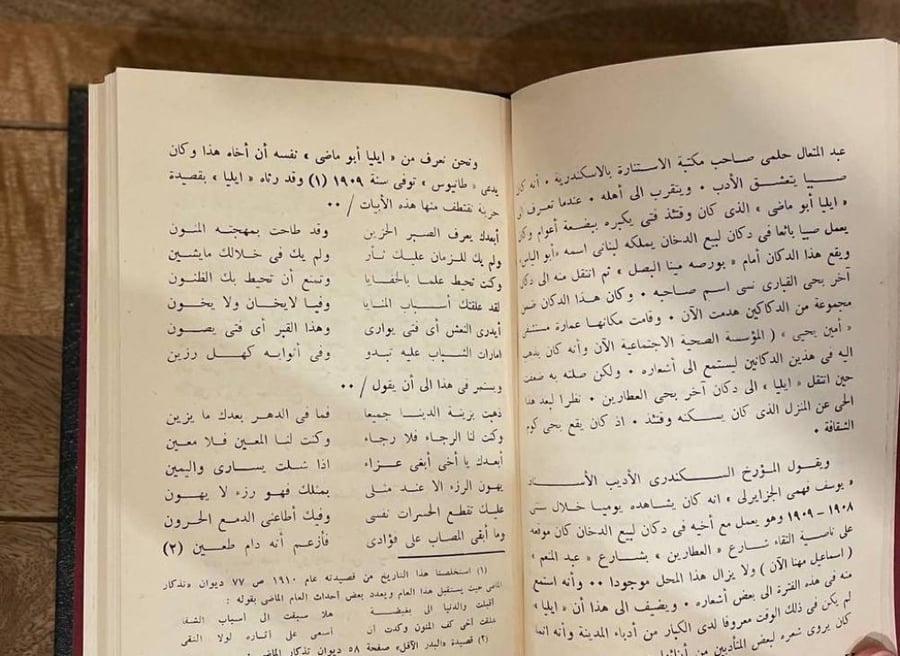 عبد المتعال حلمى صاحب مكتبة الاستنارة بالاسكندرية ٠ أنه كان
صبيا يتعشق الأدب ٠ ويتقرب الى أهله ٠ عندما تعرف
« ايليا أبو ماضى » الذى كان وقتئذ فتى يكبره ببضعة أعوام وكان
يعمل صبيا بائعا فى دكان لبيع الدخان يملكه لبنانى اسمه «أبو
ويقع هذا الدكان أمام « بورصه مينا البصل » ثم انتقل منه الى دكان
آخر بحى القبارى نسى اسم صاحبه ٠ وكان هذا الدكان ضمن
مجموعة من الدكاكين هدمت الآن ٠ وقامت مكانها عمارة مستشفى
« أمين يحيى » ( المؤسسة الصحية الاجتماعية الآن وأنه كان يذهب
اليه فى هذين الدكانين ليستمع الى أشعاره ٠ ولكن صلته به ضعفت
حين انتقل « ايليا » الى دكان آخر بحى العطارين ٠ نظرا لبعد هذا
الحى عن المنزل الذى كان يسكنه وقتئذ ٠ اذ كان يقع بحى كوم
الشقافة ٠
ويقول المؤرخ السكندرى الأديب الأستاذ
« يوسف فهمى الجزايرلى » انه كان يشاهده يوميا خلال سنتى
١٩٠٨ – ١٩٠٩ وهو يعمل مع أخيه فى دكان لبيع الدخان كان موقعه
على ناصية التقاء شارع « العطارين » بشارع « عبد المنعم »
( اسماعيل مهنا الآن ) ولا يزال هذا المحل موجودا ٠٠ وأنه استمع
منه فى هذه الفترة الى بعض أشعاره ٠ ويضيف الى هذا أن « ايليا »
لم يكن فى ذلك الوقت معروفا لدى الكبار من أدباء المدينة وأنه انما
كان يروى شعره لبعض المتأدبين من
ونحن نعرف من « ايليا أبو ماضى » نفسه أن أخاه هذا وكان
يدعى « طانيوس » توفى سنة ١٩٠٩ (١) وقد رثاه « ايليا » بقصيدة
حزينة نقتطف منها هذه الأبيات / ٠٠
أبعدك يعرف الصبر الحزين وقد طاحت بمهجته المنون
ولم يك للزمان عليك ثأر ولم يك فى خلالك مايشين
وكنت تحيط علما بالخفايا وتمنع أن تحيط بك الظنون
لقد علقتك أسباب المنايا وفيا لايخان ولا يخون
أيدرى النعش أى فتى يوارى وهذا القبر أى فتى يصون
امارات الشباب عليه تبدو وفى أثوابه كهل رزين
ويستمر فى هذا الى أن يقول / ٠٠
ذهبت بزينة الدنيا جميعا فما فى الدهر بعدك ما يزين
وكنت لنا الرجاء فلا رجاء وكنت لنا المعين فلا معين
أبعدك يا أخى أبغى عزاء اذا شلت يسارى واليمين
يهون الرزء الا عند مثلى بمثلك فهو رزء لا يهون
عليك تقطع الحسرات نفسى وفيك أطاعنى الدمع الحرون
وما أبقى المصاب على فؤادى فأزعم أنه دام طعين (٢)
(١) استخلصنا هذا التاريخ من قصيدته عام ١٩١٠ ص ٧٧ ديوان «تذكار
الماضى» حيث يستقبل هذا العام ويعدد بعض أحداث العام الماضى بقوله :
أقبلت والدنيا الى بغيضة هلا سبقت الى أسباب الشقا
علقت أخى كف المنون وكدت أن أسعى على آثاره لولا التقى
(٢) قصيدة «البدر الآفل» صفحة ٥٨ ديوان تذكار الماضى